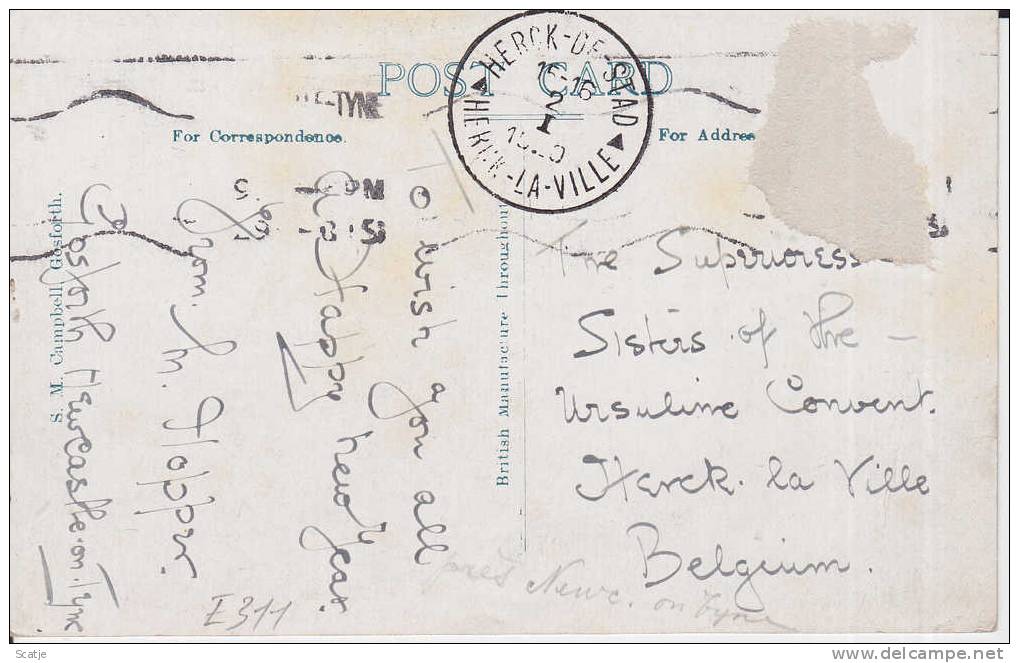 POST CARD
For Correspondence.
For Addres
HERCK-DE-STAD
HERCK-LA-VILLE
15-16
2
I
E-TYNE
PM
To wish you all
a Happy New Year.
From. M.
Gosforth Newcastle-on-Tyne
S. M. Campbell, Gosforth.
British Manufacture Throughout
The Superioress
Sisters of the
Ursuline Convent.
Herck. la Ville
Belgium.
près Newc. on Tyne
E311
Scatje
delcampe.net